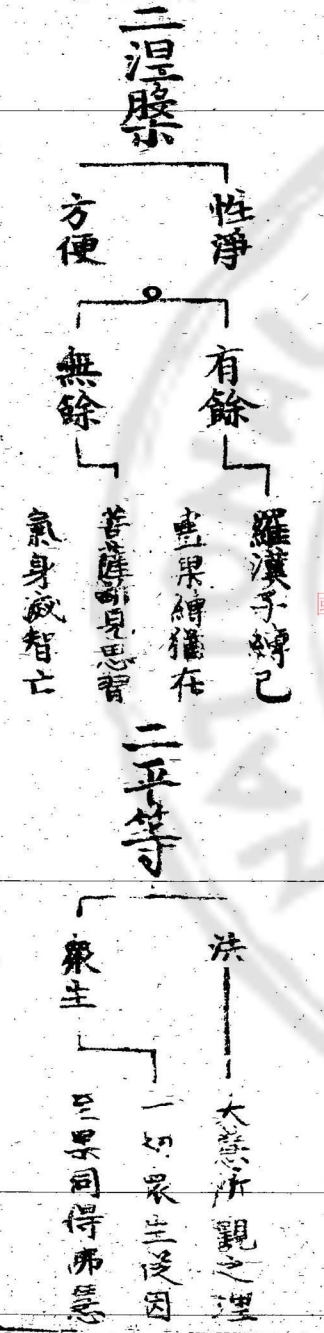 二涅槃
性淨
方便
有餘
無餘
羅漢子縛已
盡果縛猶在
菩薩斷見思習
氣身滅智亡
二平等
法
眾生
大慧所觀之理
一切眾生從因
至果同得佛慧